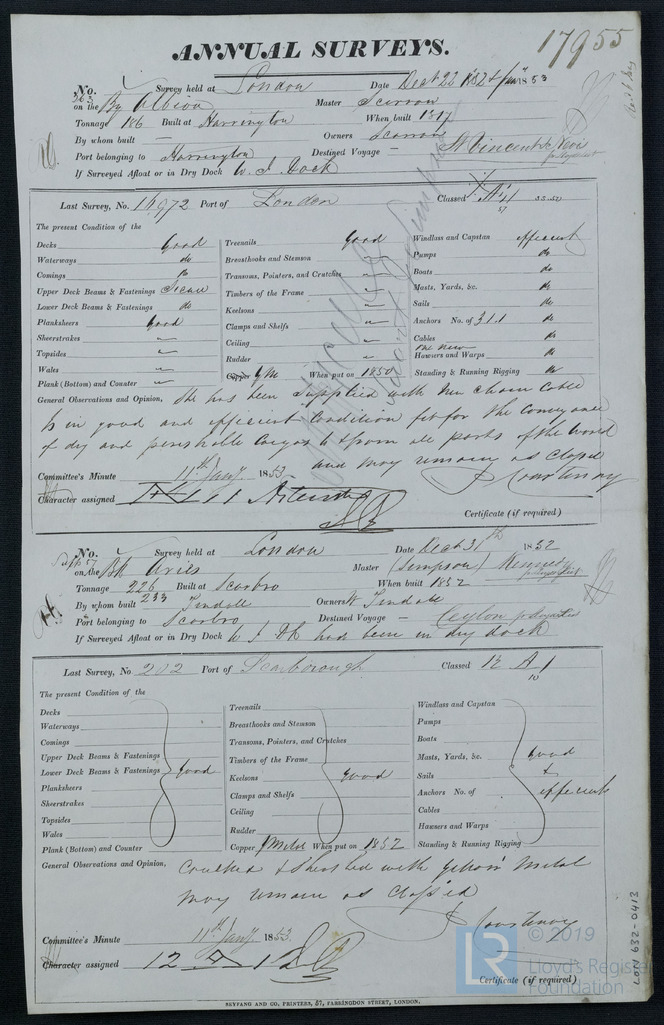 17955
ANNUAL SURVEYS.
No. 363 Survey held at London Date Dect 22 1852 & Jany 1853
on the Bg Albion Master Scurrow
Tonnage 186 Built at Harrington When built 1847
By whom built — Owners Scurrow
Port belonging to Harrington Destined Voyage — St Vincent & Nevis
If Surveyed Afloat or in Dry Dock W. I. Dock
Last Survey, No. 16,972 Port of London Classed A 1
The present Condition of the
Decks Good Treenails Good Windlass and Capstan efficient
Waterways do Breasthooks and Stemson " Pumps do
Comings do Transoms, Pointers, and Crutches " Boats do
Upper Deck Beams & Fastenings Timbers of the Frame " Masts, Yards, &c. do
Lower Deck Beams & Fastenings do Keelsons " Sails do
Planksheers Good Clamps and Shelfs " Anchors No. of 3.1.1 do
Sheerstrakes " Ceiling " Cables do
Topsides " Rudder " one new Hawsers and Warps do
Wales " Copper YM When put on 1850 Standing & Running Rigging do
Plank (Bottom) and Counter "
General Observations and Opinion, She has been supplied with new chain Cable
Is in good and efficient Condition fit for the Conveyance
of dry and perishable cargos to & from all parts of the World
and may remain as Classed
J Courtenay
Committee's Minute 11th Jany 1853
Character assigned
Certificate (if required)
No. Survey held at London Date Dect 31st 1852
on the Bk Aries Master (Simpson)
Tonnage 226 Built at Scarbro When built 1852
233
By whom built Tindall Owners W Tindall
Port belonging to Scarbro Destined Voyage — Ceylon
If Surveyed Afloat or in Dry Dock W I D had been in dry dock
Last Survey, No 202 Port of Scarborough Classed 12 A 1
The present Condition of the
Decks Treenails Windlass and Capstan
Waterways Breasthooks and Stemson Pumps
Comings Transoms, Pointers, and Crutches Boats
Upper Deck Beams & Fastenings Timbers of the Frame Masts, Yards, &c. Good
Lower Deck Beams & Fastenings Good Keelsons Good Sails &
Planksheers Clamps and Shelfs Anchors No. of efficient
Sheerstrakes Ceiling Cables
Topsides Rudder Hawsers and Warps
Wales Copper YMetal When put on 1852 Standing & Running Rigging
Plank (Bottom) and Counter
General Observations and Opinion, Caulked & Sheathed with yellow Metal
may remain as Classed
J Courtenay
Committee's Minute 11th Jany 1853
Character assigned 12 A 1
Certificate (if required)
SEYFANG AND CO., PRINTERS, 57, FARRINGDON STREET, LONDON.
LON 632-0413
LR © 2019
Lloyd's Register
Foundation